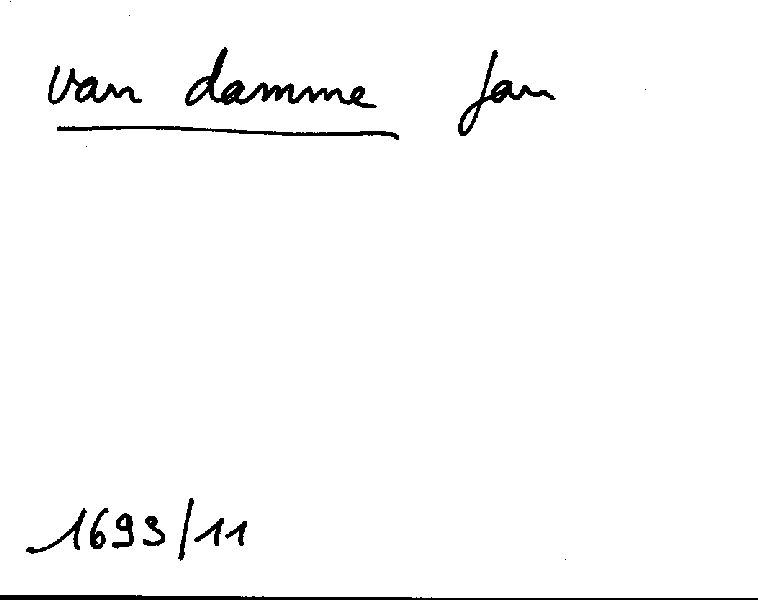 van damme Jan
1693/11